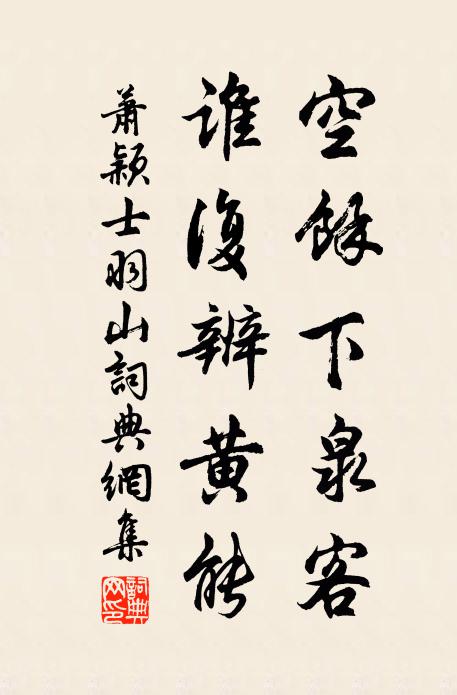 空餘下泉客
誰復辨黃能
蕭穎士羽山詞典網集
詞典網印